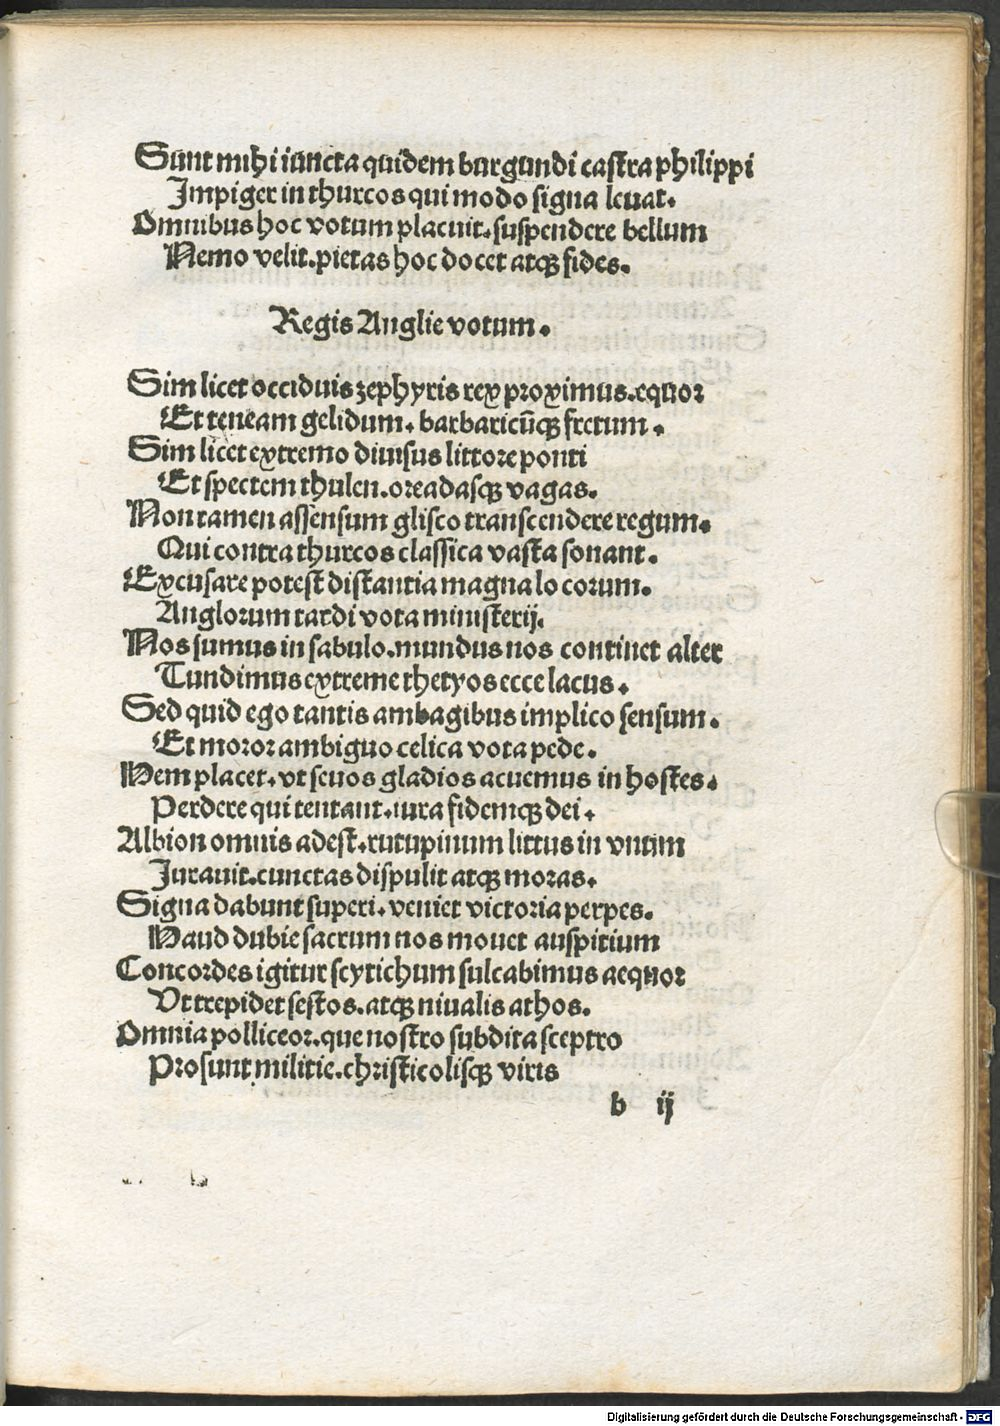 Sunt mihi iuncta quidem burgundi castra philippi
Impiger in thurcos qui modo signa leuat.
Omnibus hoc votum placuit. suspendere bellum
Nemo velit. pietas hoc docet atqꝫ fides.
Regis Anglie votum.
Sim licet occiduis zephyris rex proximus. equor
Et teneam gelidum. barbaricūqꝫ fretum.
Sim licet extremo diuisus littore ponti
Et spectem thulen. oreadasqꝫ vagas.
Non tamen assensum glisco transcendere regum.
Qui contra thurcos classica vasta sonant.
Excusare potest distantia magna locorum.
Anglorum tardi vota ministerij.
Nos sumus in sabulo. mundus nos continet alter
Tundimus extreme thetyos ecce lacus.
Sed quid ego tantis ambagibus implico sensum.
Et moror ambiguo celica vota pede.
Nem placet. vt seuos gladios acuemus in hostes.
Perdere qui tentant. iura fidemqꝫ dei.
Albion omnis adest. rutupinum littus in vnum
Jurauit. cunctas dispulit atqꝫ moras.
Signa dabunt superi. veniet victoria perpes.
Haud dubie sacrum nos mouet auspitium
Concordes igitur scytichum sulcabimus aequor
Vt trepidet sestos. atqꝫ niualis athos.
Omnia polliceor. que nostro subdita sceptro
Prosunt militie. christicolisqꝫ viris
b ij
Digitalisierung gefördert durch die Deutsche Forschungsgemeinschaft - DFG